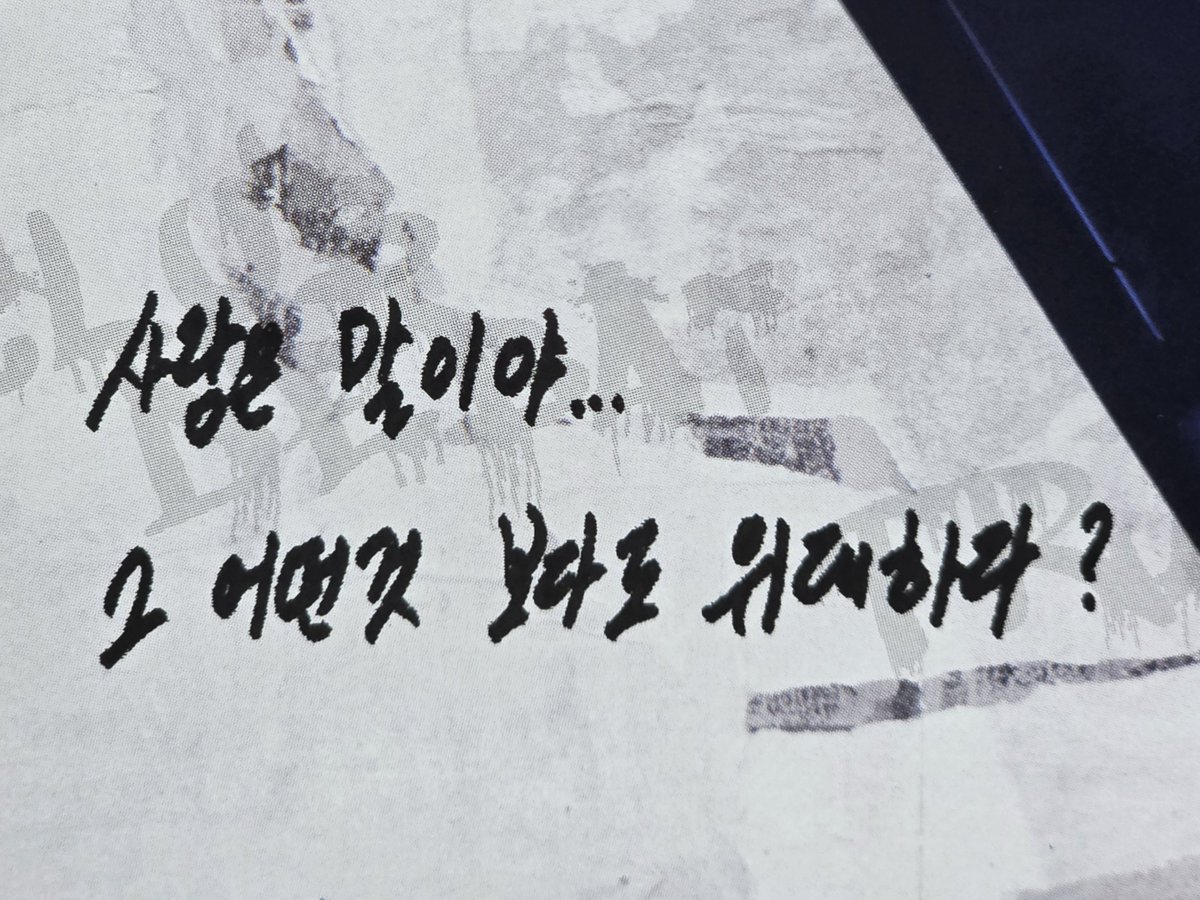 사랑은 말이야...
그 어떤것 보다도 위대하다?